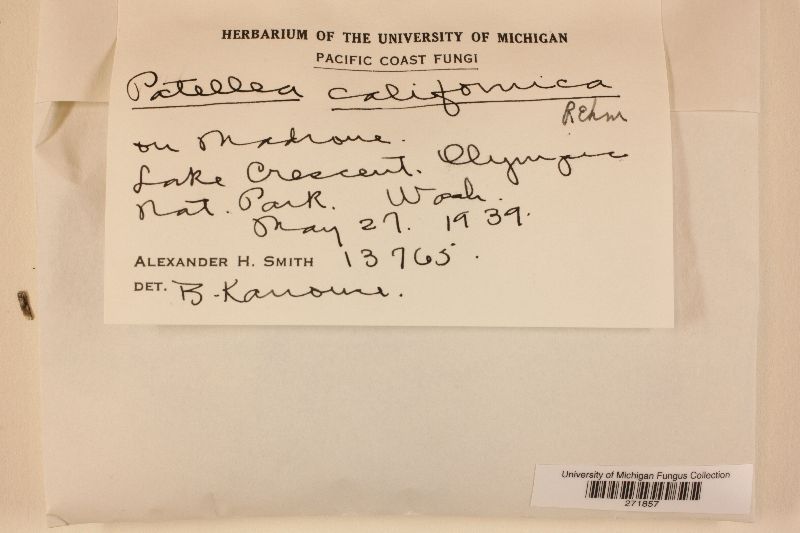 HERBARIUM OF THE UNIVERSITY OF MICHIGAN
PACIFIC COAST FUNGI
Patellea californica
Rehm
on Madrone.
Lake Crescent. Olympic
Nat. Park. Wash.
May 27. 1939.
ALEXANDER H. SMITH 13765.
DET. B. Kanouse.
University of Michigan Fungus Collection
271857